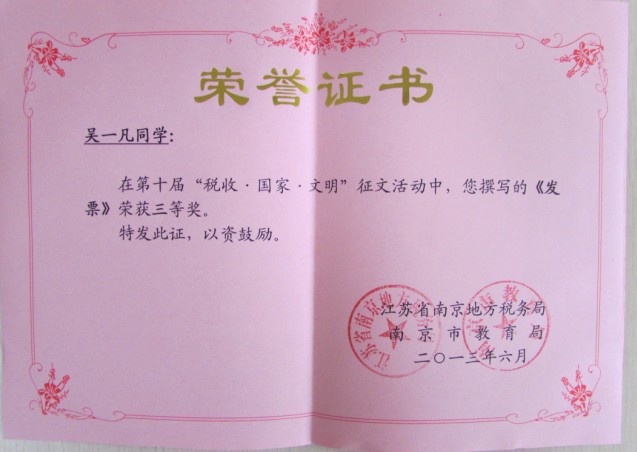 荣誉证书
吴一凡同学：
在第十届“税收·国家·文明”征文活动中，您撰写的《发
票》荣获三等奖。
特发此证，以资鼓励。
江苏省南京地方税务局
南京市教育局
二〇一三年六月
江苏省南京地方
南京市教